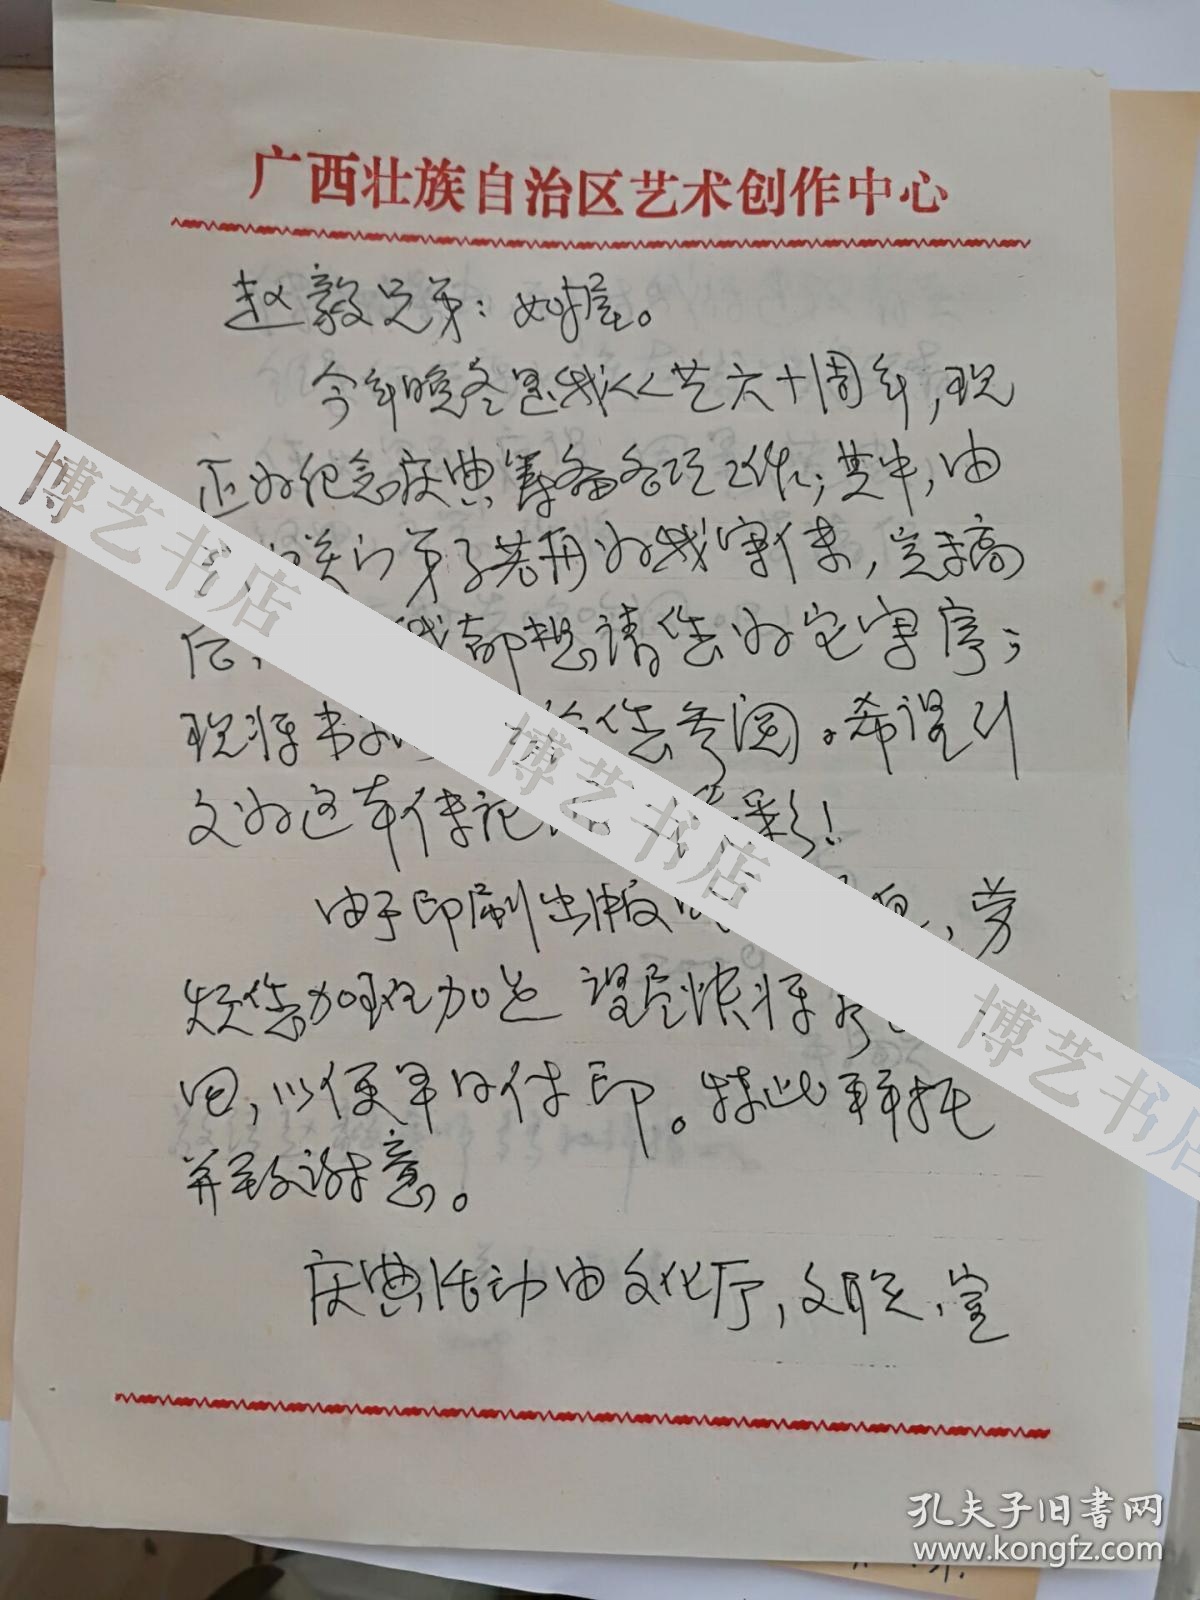 广西壮族自治区艺术创作中心
赵毅兄弟：如握。
今年晚冬是我从艺六十周年，现
正为纪念庆典筹备各项工作；其中，由
关门弟子若冉为我写传，完稿
后，我都想请您为它写序；
现将书 给您参阅。希望以
文为这本传记 彩！
由于印刷出版 ，劳
烦您加班加点 望尽快将序
回，以便早日付印。特此拜托
并致谢意。
庆典活动由文化厅，文联，宣
博艺书店
博艺书店
博艺书店
孔夫子旧书网
www.kongfz.com